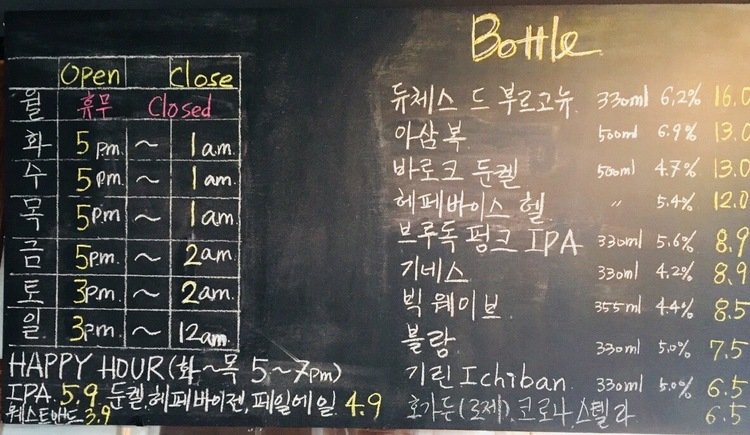 Open Close
월 휴무 Closed
화 5pm. ~ 1am.
수 5pm. ~ 1am.
목 5pm ~ 1am.
금 5pm. ~ 2am.
토 3pm. ~ 2am.
일 3pm. ~ 12am.
HAPPY HOUR (화~목 5~7pm)
IPA. 5.9. 둔켈, 헤페바이젠, 페일에일 4.9
웨스트앤드 3.9
Bottle
듀체스 드 부르고뉴 330ml 6.2% 16.0
아삼복 500ml 6.9% 13.0
바로크 둔켈 500ml 4.7% 13.0
헤페바이스 헬 〃 5.4% 12.0
브루독 펑크 IPA 330ml 5.6% 8.9
기네스 330ml 4.2% 8.9
빅 웨이브 355ml 4.4% 8.5
블랑 330ml 5.0% 7.5
기린 Ichiban 330ml 5.0% 6.5
호가든(로제), 코로나, 스텔라 6.5